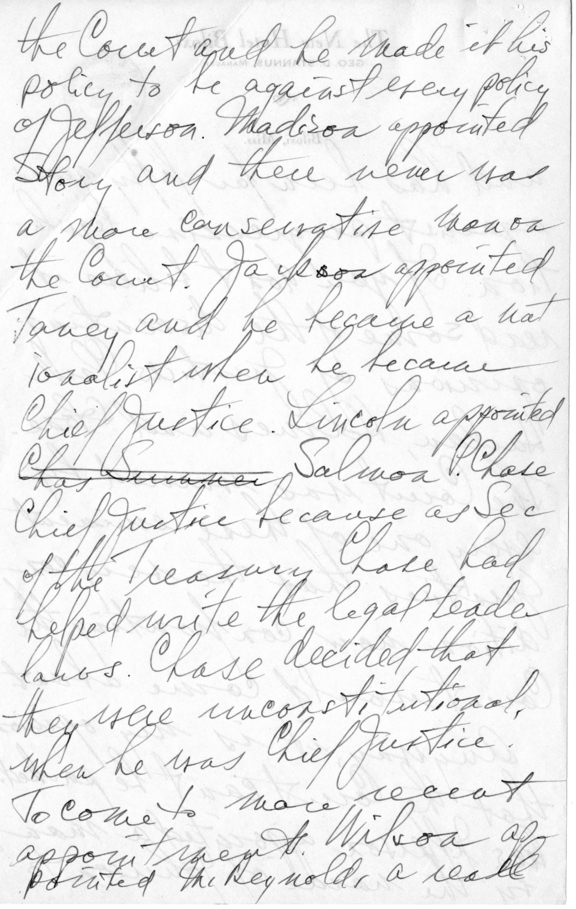 the Court and he made it his
policy to be against every policy
of Jefferson. Madison appointed
Story and there never was
a more conservative man on
the Court. Jackson appointed
Taney and he became a nat
ionalist when he became
Chief Justice. Lincoln appointed
Chas Sumner Salmon P. Chase
Chief Justice because as Sec
of the Treasury Chase had
helped write the legal tender
laws. Chase decided that
they were unconstitutional,
when he was Chief Justice.
To come to more recent
appointments. Wilson ap-
pointed McReynolds, a real